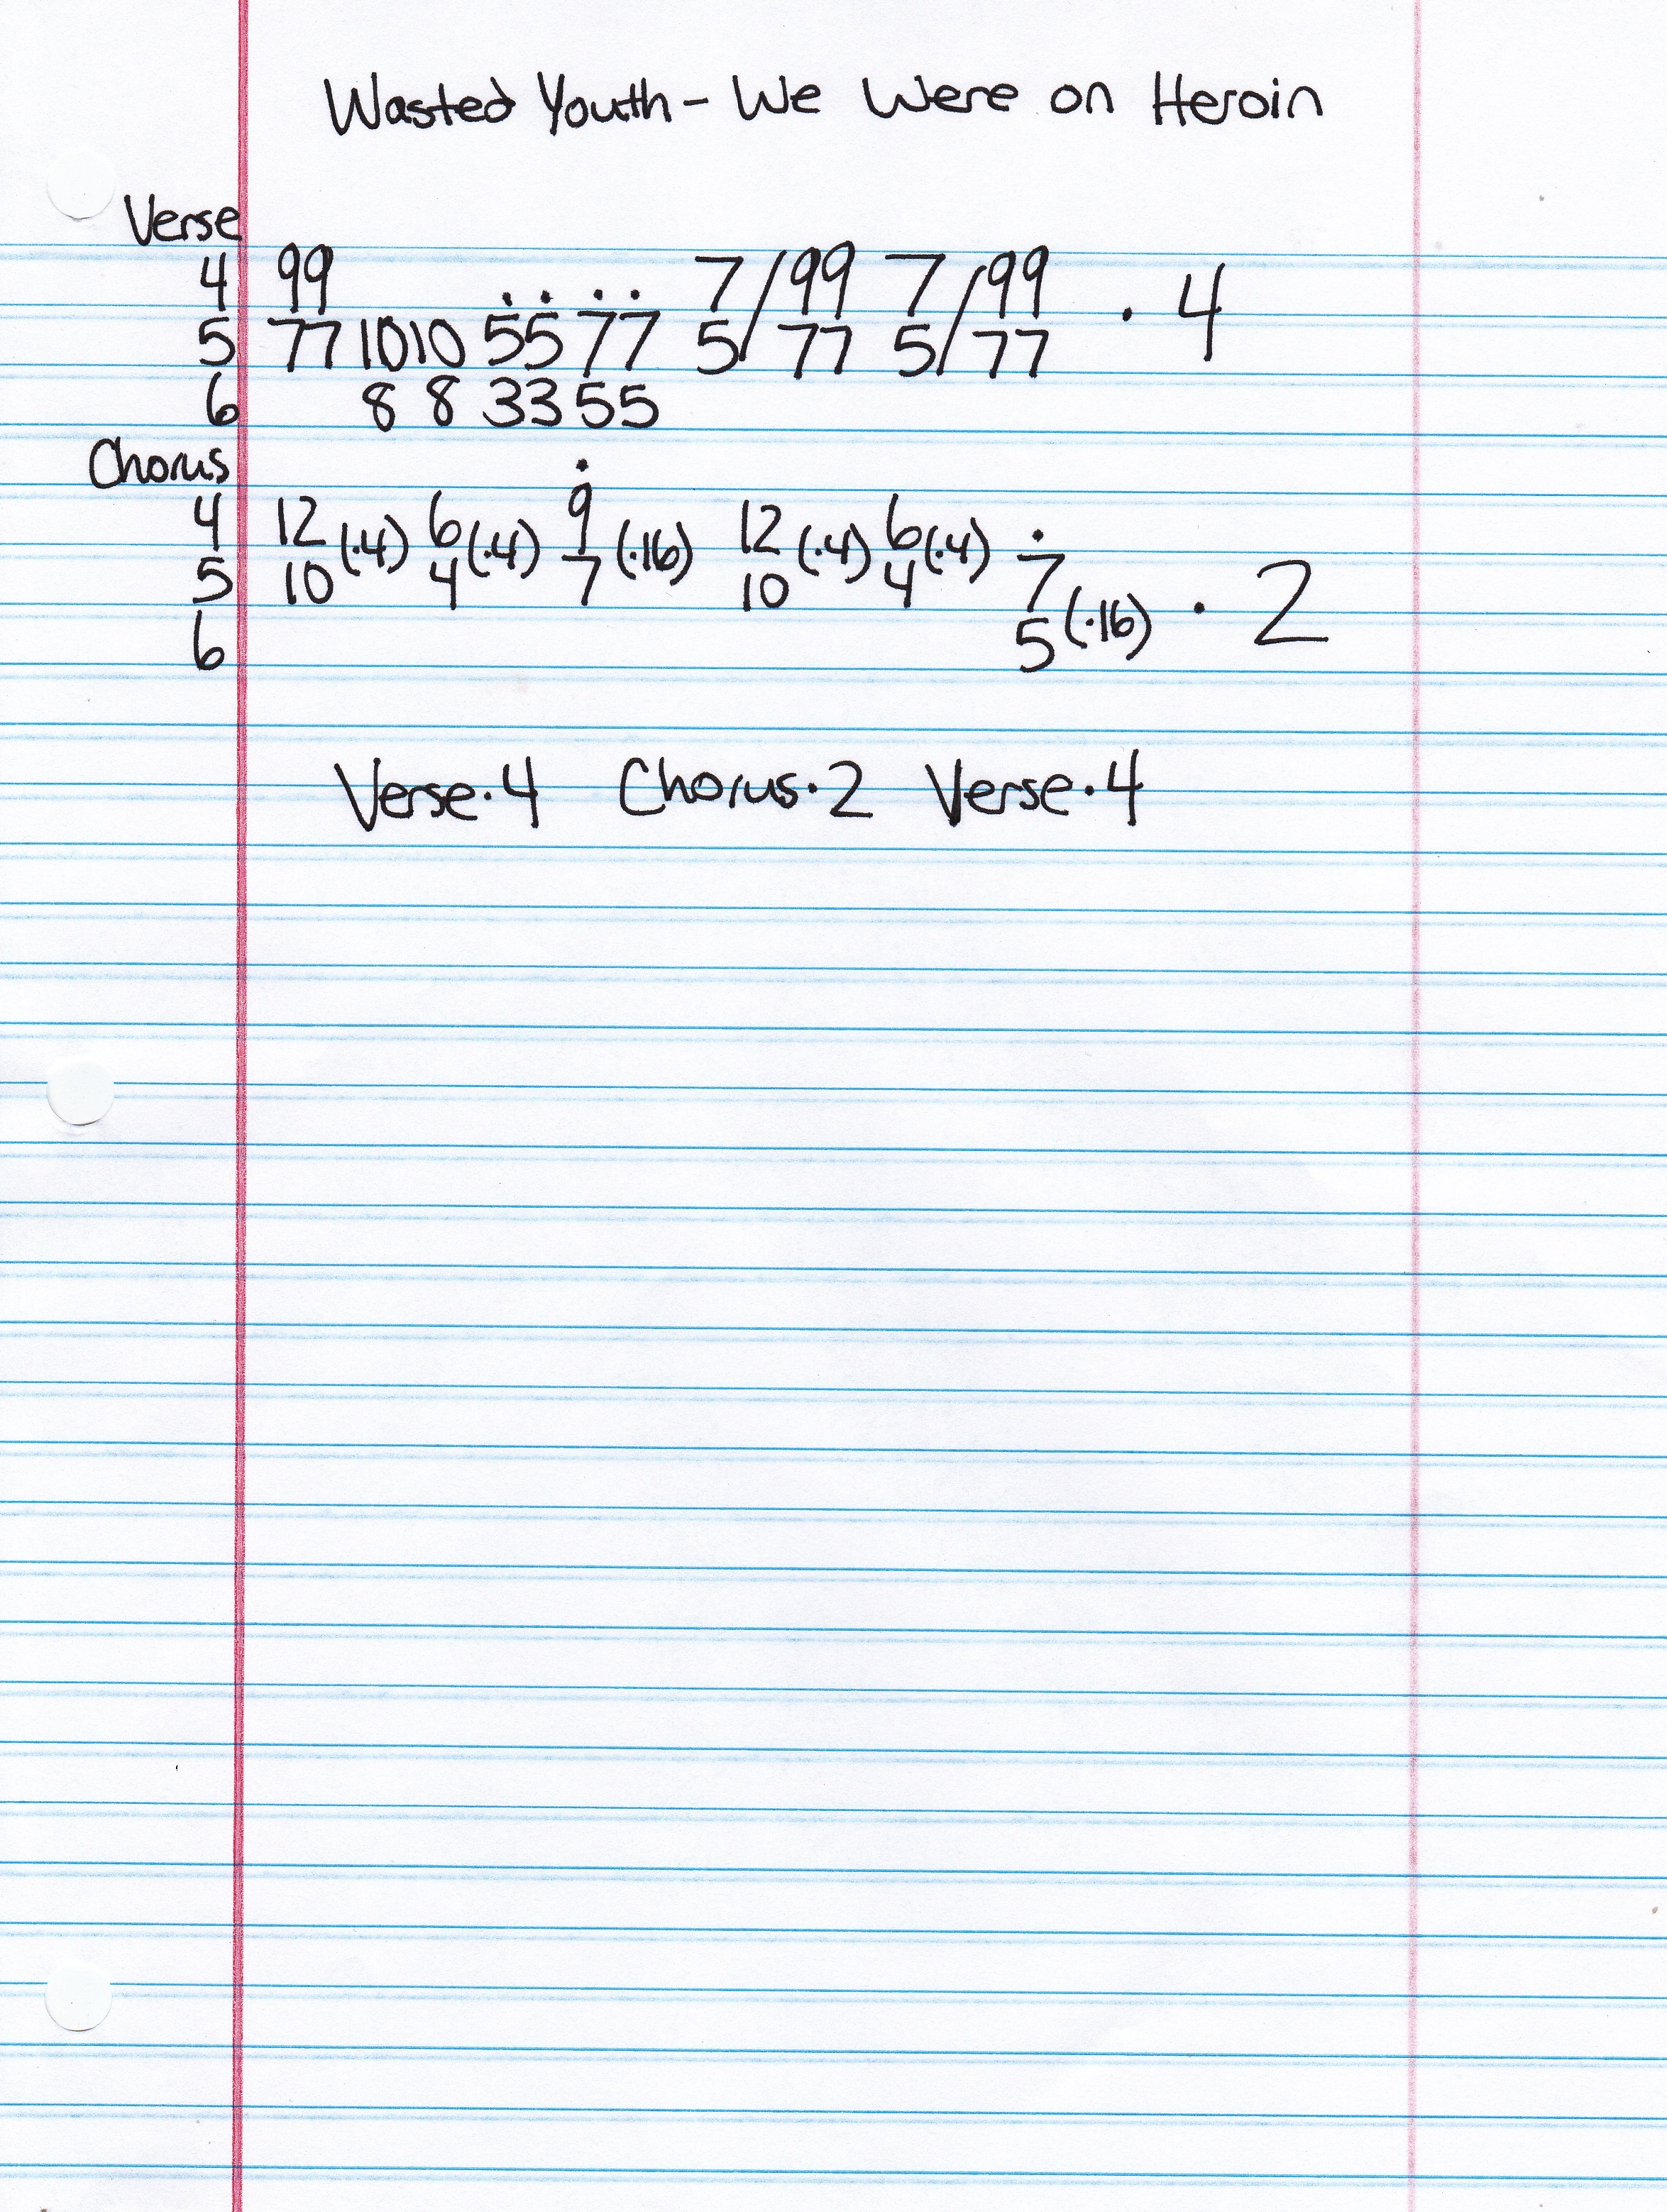 Wasted Youth - We Were on Heroin
Verse
4 99 . . . . 7/99 7/99 · 4
5 77 1010 55 77 5/77 5/77
6 8 8 33 55
Chorus
.
4 12 (·4) 6 (·4) 9 (·16) 12 (·4) 6 (·4) .
5 10 4 7 10 4 7 (·16) · 2
6 5
Verse·4 Chorus·2 Verse·4